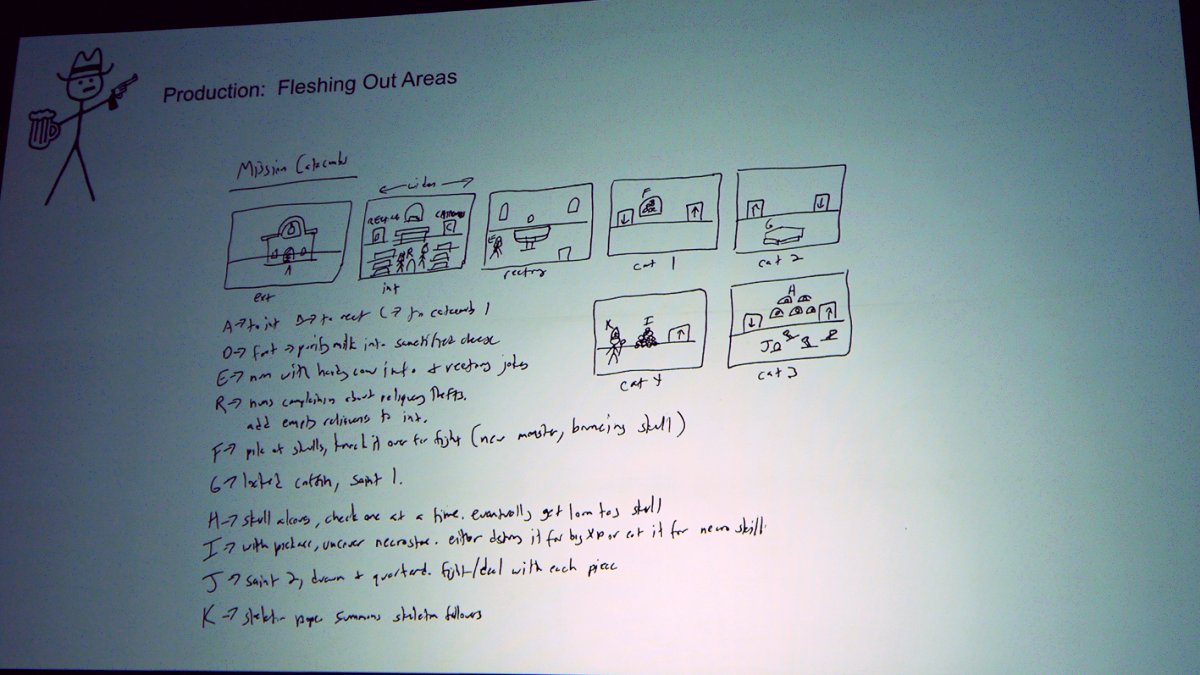 Production: Fleshing Out Areas
Mission Catacombs
← wider →
F
RECTORY
E
R
G
A
ext
int
rectory
cat 1
cat 2
H
K
I
J
cat 4
cat 3
A → to int B → to rect C → to catacomb 1
D → font → purify milk into sanctified cheese
E → nun with info + rectory jokes
R → nuns complaining about reliquary thefts.
add empty to int.
F → pile of skulls, knock it over for fight (new monster, bouncing skull)
G → locked coffin, saint 1.
H → skull alcoves, check one at a time. eventually get skull
I → with pickaxe, uncover. either destroy it for big XP or eat it for necro skill
J → saint 2, drawn + quartered. fight/deal with each piece
K → skeleton pope summons skeleton followers